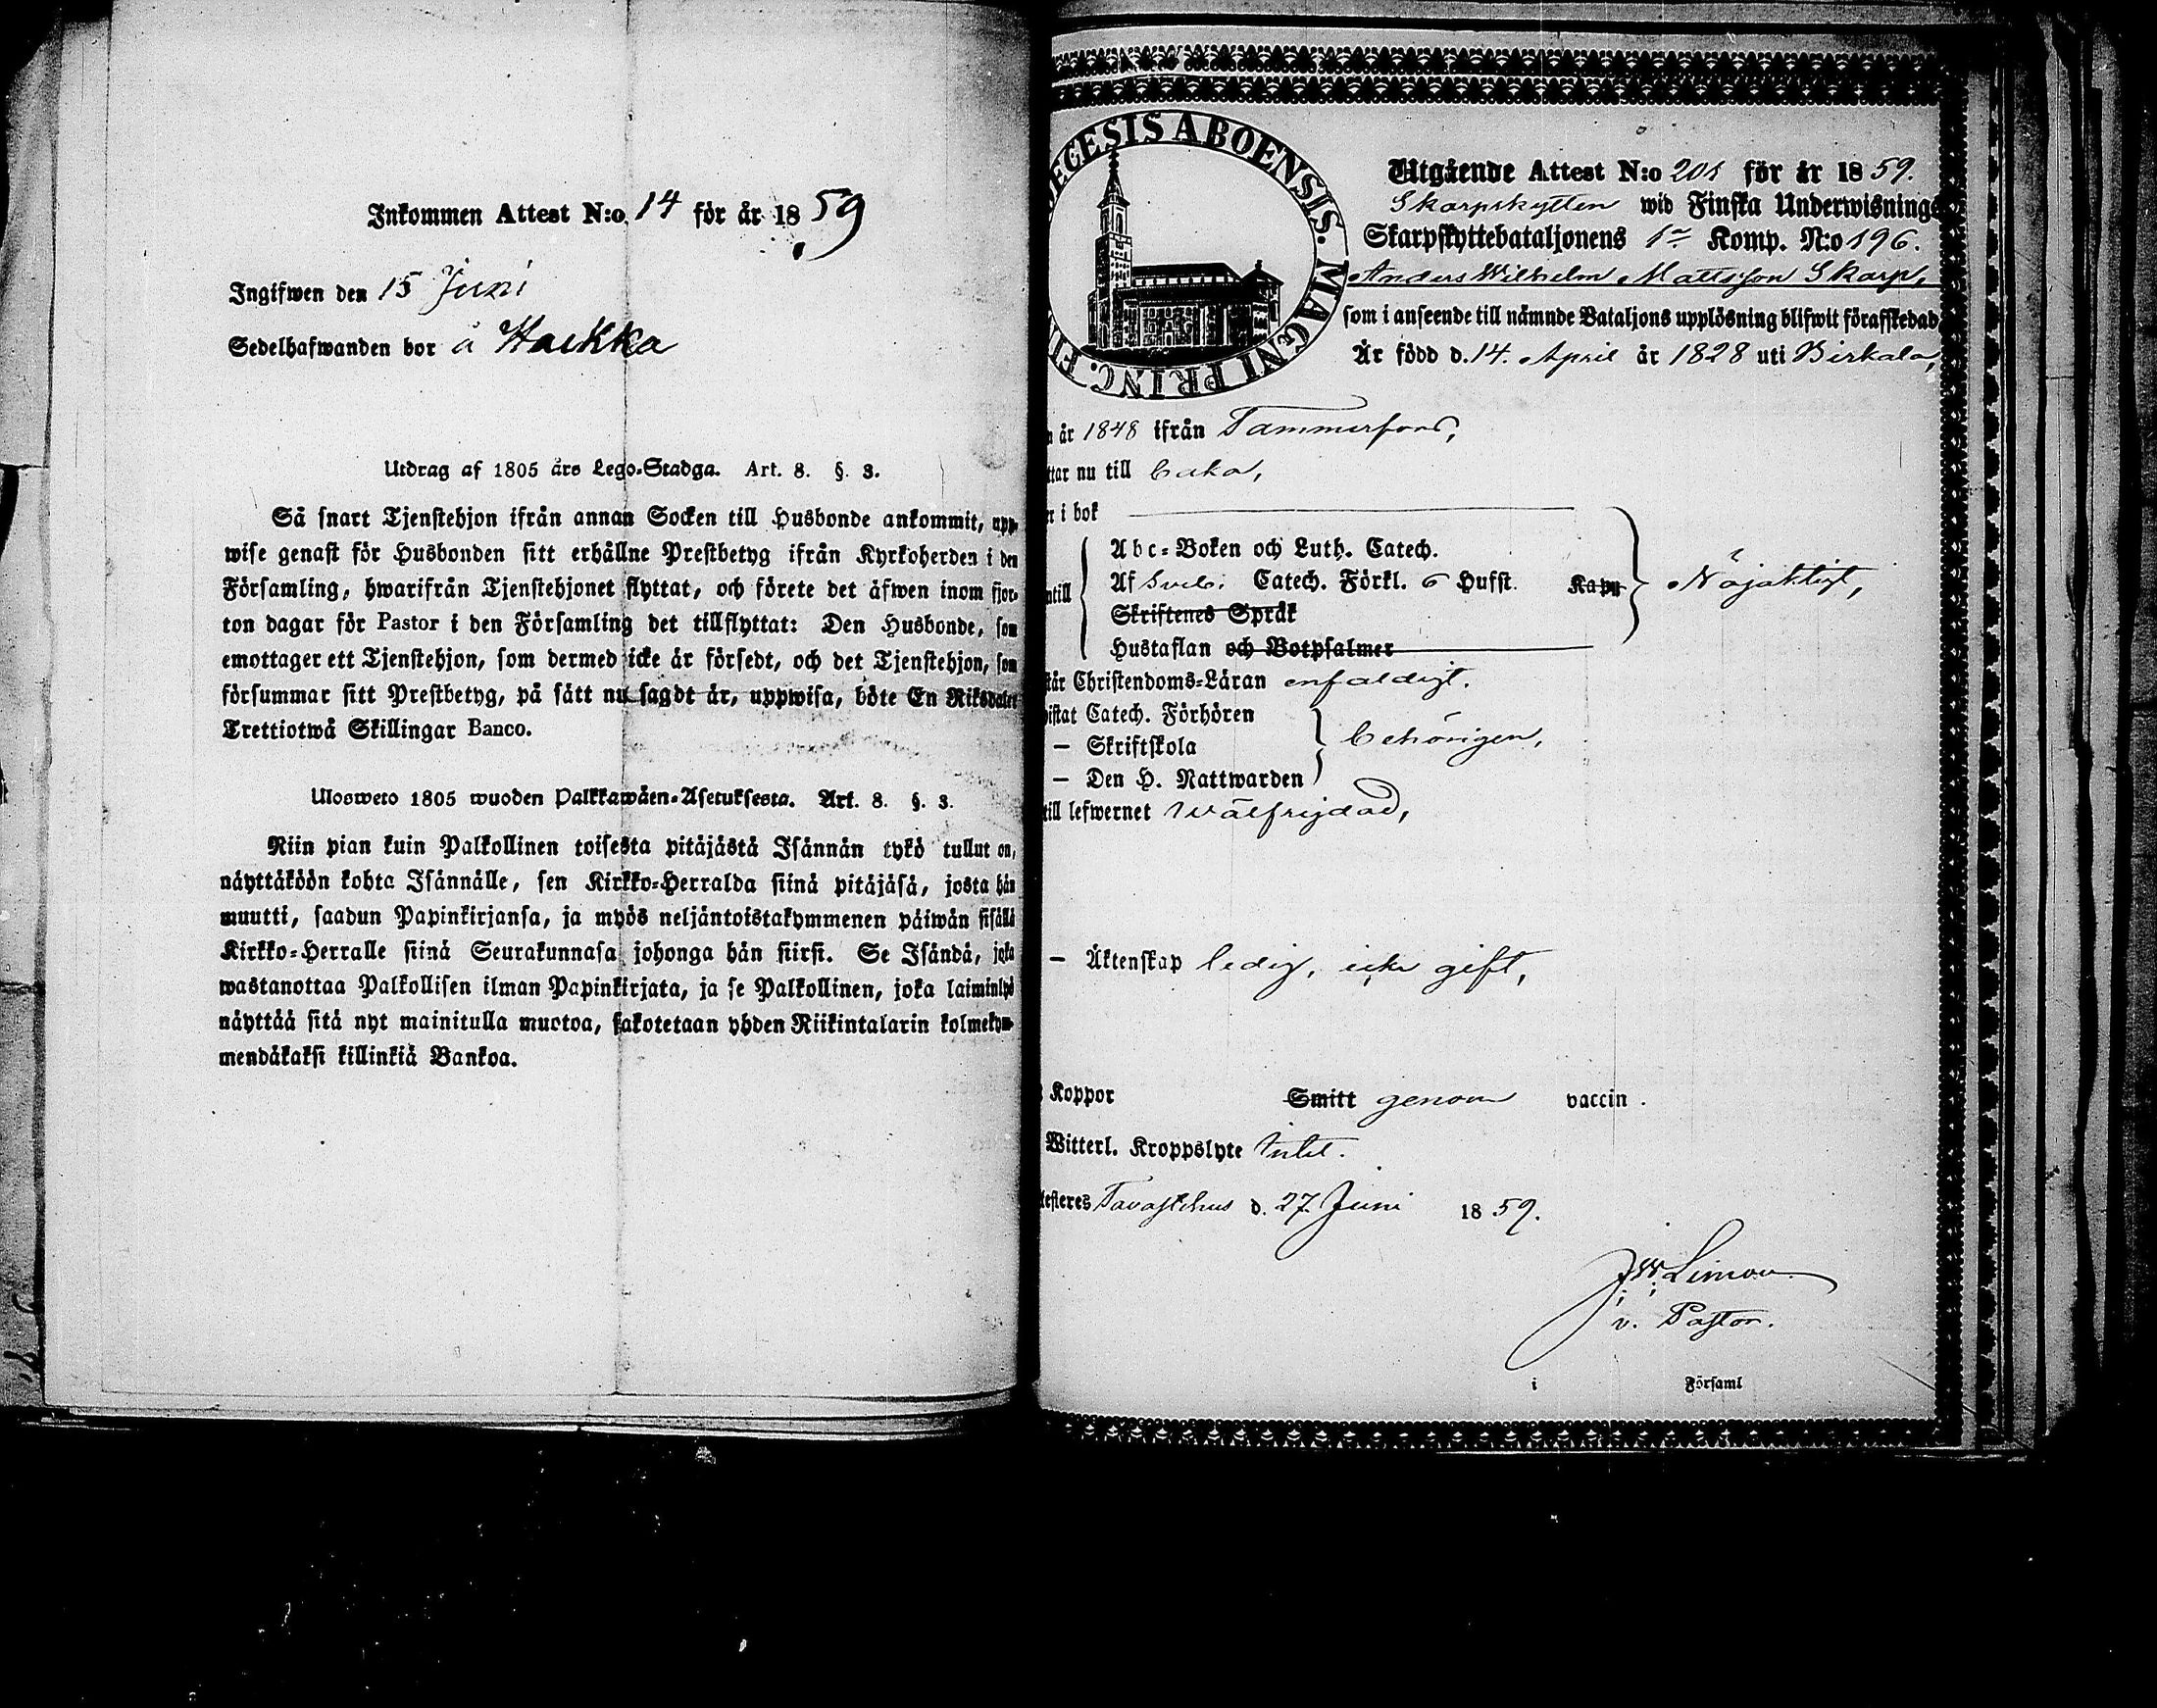 Inkommen Attest N:o 14 för år 1859
Ingifwen den 15 Juni
Sedelhafwanden bor å Haikka
Utdrag af 1805 års Lego-Stadga. Art. 8. §. 3.
Så snart Tjenstehjon ifrån annan Socken till Husbonde ankommit, upp-
wise genast för Husbonden sitt erhållne Prestbetyg ifrån Kyrkoherden i den
Församling, hwarifrån Tjenstehjonet flyttat, och förete det äfwen inom fjor-
ton dagar för Pastor i den Församling det tillflyttat: Den Husbonde, som
emottager ett Tjenstehjon, som dermed icke är försedt, och det Tjenstehjon, som
försummar sitt Prestbetyg, på sätt nu sagdt är, uppwisa, böte En Riksdaler
Trettiotwå Skillingar Banco.
Ulosweto 1805 wuoden Palkkawäen-Asetuksesta. Art. 8. §. 3.
Niin pian kuin Palkollinen toisesta pitäjästä Isännän tykö tullut on,
näyttäköön kohta Isännälle, sen Kirkko-Herralda siinä pitäjäsä, josta hän
muutti, saadun Papinkirjansa, ja myös neljäntoistakymmenen päiwän sisällä
Kirkko-Herralle siinä Seurakunnasa johonga hän siirsi. Se Isändä, joka
wastanottaa Palkollisen ilman Papinkirjata, ja se Palkollinen, joka laiminlyö
näyttää sitä nyt mainitulla muotoa, sakotetaan yhden Riikintalarin kolmekym-
mendäkaksi killinkiä Bankoa.
ECESIS ABOENSIS. MAGNI PRINC. FI
Utgående Attest N:o 201 för år 1859.
Skarpskytten wid Finska Underwisnings
Skarpskyttebataljonens 1:a Komp. N:o 196.
Anders Wilhelm Mattsson Skarp,
som i anseende till nämnde Bataljons upplösning blifwit förafskedad
Är född d. 14. April år 1828 uti Birkala,
år 1848 ifrån Tammerfors,
ttar nu till
r i bok
Abc-Boken och Luth. Catech.
ntill Af Sveb. Catech. Förkl. 6 Hufst. Kapp Nöjaktigt,
Skriftenes Språk
Hustaflan och Botpsalmer
står Christendoms-Läran enfaldigt.
istat Catech. Förhören
– Skriftskola behörigen,
– Den H. Nattwarden
till lefwernet wälfrejdad,
– Äktenskap ledig, icke gift,
Koppor Smitt genom vaccin.
Witterl. Kroppslyte intet.
testeres Tavastehus d. 27 Juni 1859.
v. Pastor.
i Församl